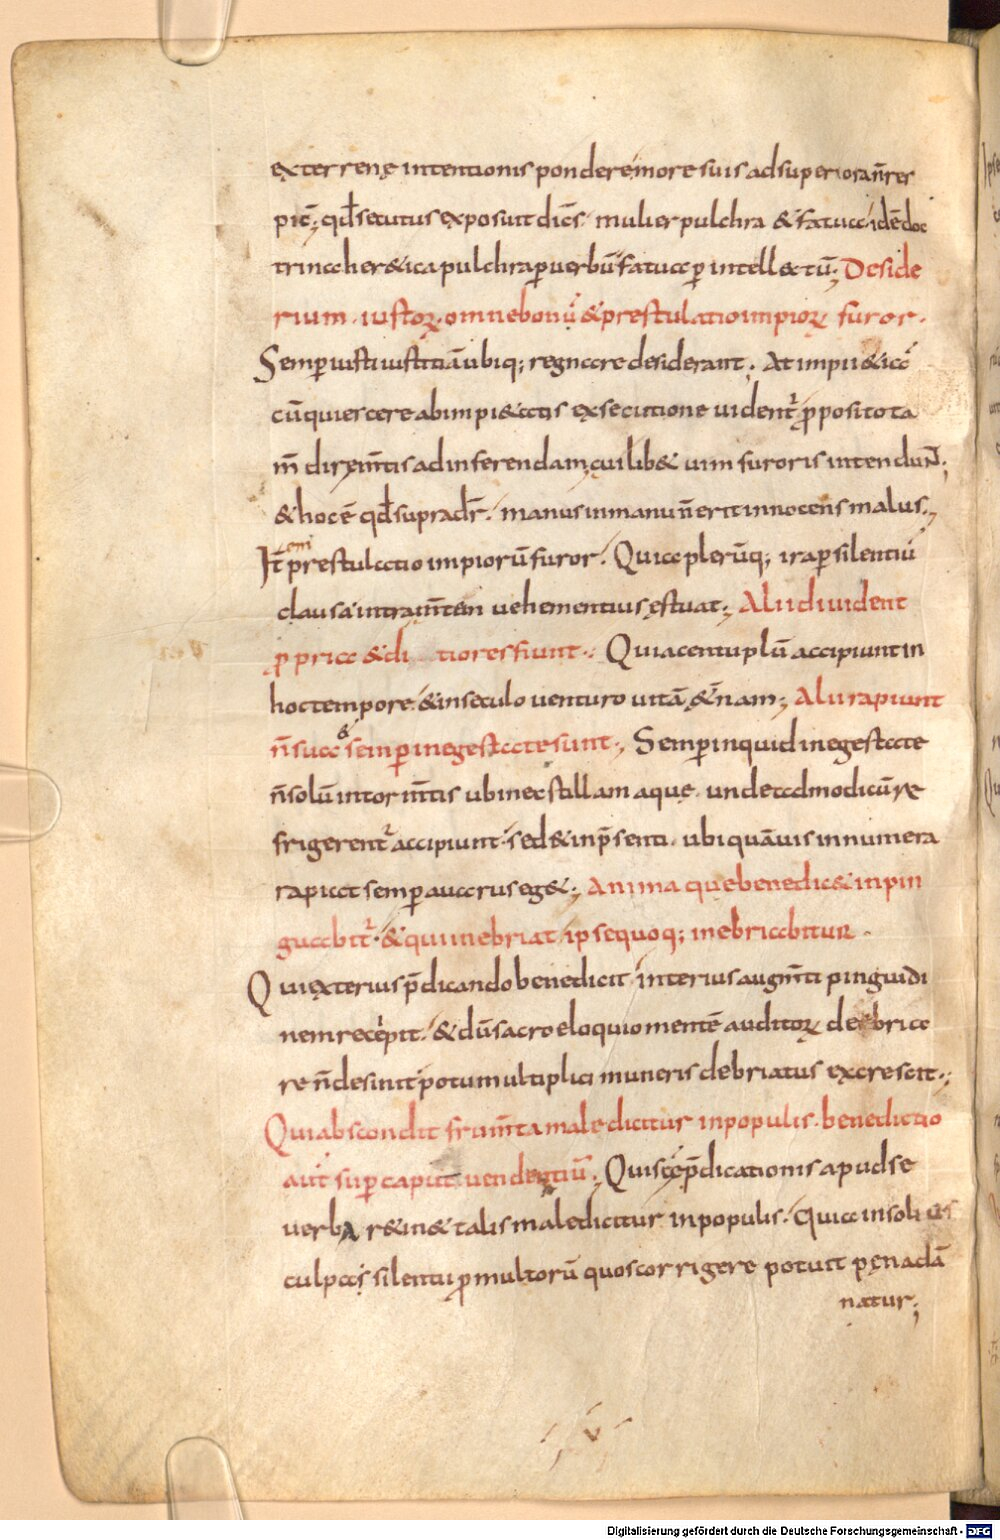 ex terrenę intentionis pondere more suis ad superiora n̄ res
picit̄; qđ secutus exposuit dicēs. mulier pulchra & fatua. idē doc
trina heretica pulchra p̱ uerbū fatua p̱ intellectū; Deside
rium iustoꝝ omne bonū. & prestulatio impioꝝ furor.
Semp̱ iusti iustitiā ubiq; regnare desiderant. At impii & iā
cū quiescere ab impietatis exsecutione uident᷑ p̱posito ta
m̄ dire m̄tis ad inferendam cuilib& uim furoris intendunt;
& hoc ē qđ supra dr̄. manus in manu n̄ erit innocens malus;
Jtem prestulatio impiorū furor. Quia plerūq; ira p̱ silentiū
clausa intra mentem uehementius ęstuat; Alii diuident
p̱pria & di tiores fiunt; Qui a centuplū accipiunt in
hoc tempore & in seculo uenturo uitā &n̄am; Alii rapiunt
n̄ sua & semp̱ in egestate sunt; Semp̱ inquid in egestate
n̄ solū in tor m̄tis ubi nec stillam aquę. unde ad modicū re
frigerent᷑ accipiunt. sed & in p̄senti. ubi quāuis innumera
rapiat semp̱ auarus eg&; Anima que benedic& inpin
guabit᷑. & qui inebriat ipse quoq; inebriabitur.
Qui exterius p̄dicando benedicit. interius augm̄ti pinguidi
nem recepit. & dū sacro eloquio mentē auditoꝝ debria
re n̄ desinit potu multiplici muneris debriatus excrescit;
Qui abscondit frum̄ta maledicitur in populis. benedictio
aut̄ sup̱ caput uendentiū; Qui scę p̄dicationis apud se
uerba retinet talis maledicitur in populis. Quia in solius
culpa silentii p̱ multorū quos corrigere potuit pęna dā
natur;
Digitalisierung gefördert durch die Deutsche Forschungsgemeinschaft - DFG